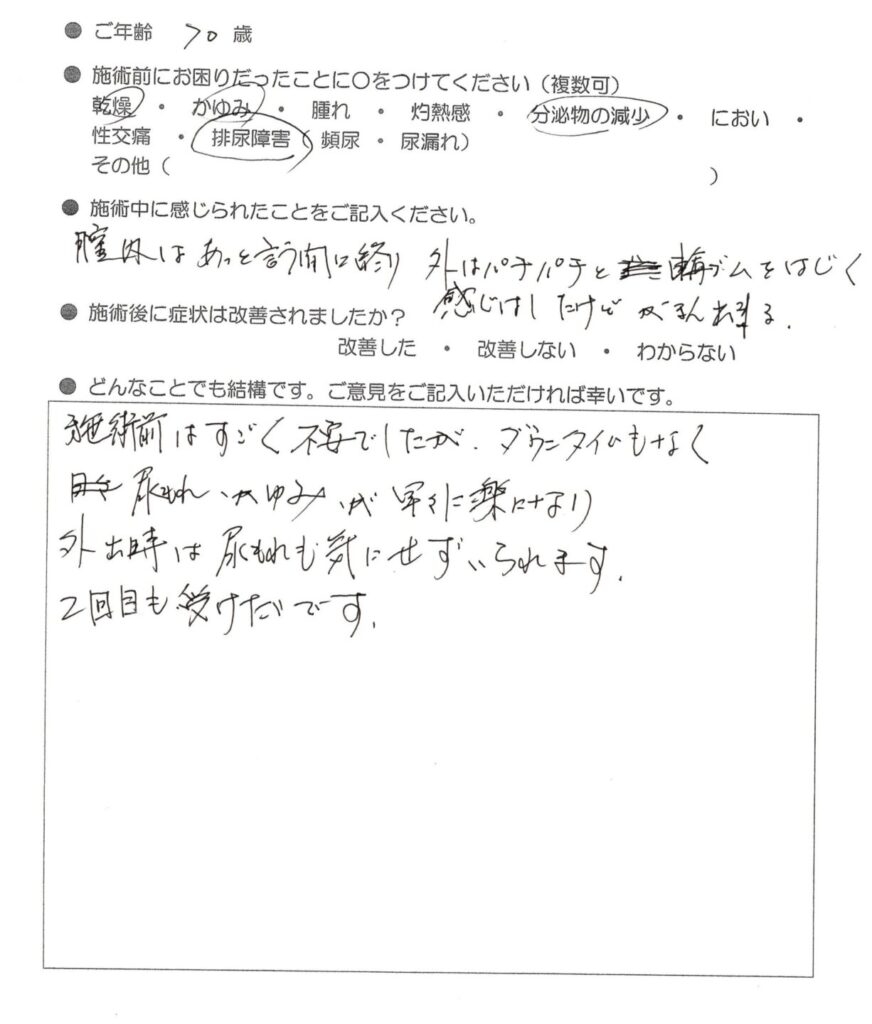 ● ご年齢 70 歳
● 施術前にお困りだったことに○をつけてください（複数可）
乾燥 ・ かゆみ ・ 腫れ ・ 灼熱感 ・ 分泌物の減少 ・ におい ・
性交痛 ・ 排尿障害（頻尿 ・ 尿漏れ）
その他（ ）
● 施術中に感じられたことをご記入ください。
膣内はあっと言う間に終り 外はパチパチと 輪ゴムをはじく
感じはしたけど がまん出来る.
● 施術後に症状は改善されましたか？
改善した ・ 改善しない ・ わからない
● どんなことでも結構です。ご意見をご記入いただければ幸いです。
施術前はすごく不安でしたが、ダウンタイムもなく
尿もれ、かゆみ、が 早々に楽になり
外出時は 尿もれも気にせずいられます.
2回目も受けたいです.